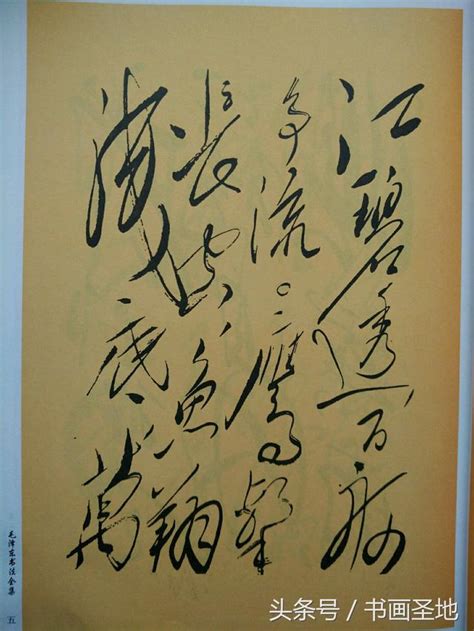 江碧透百舸
争流。鷹擊
長空魚翔
淺底萬
毛泽东书法全集
五
头条号 / 书画圣地